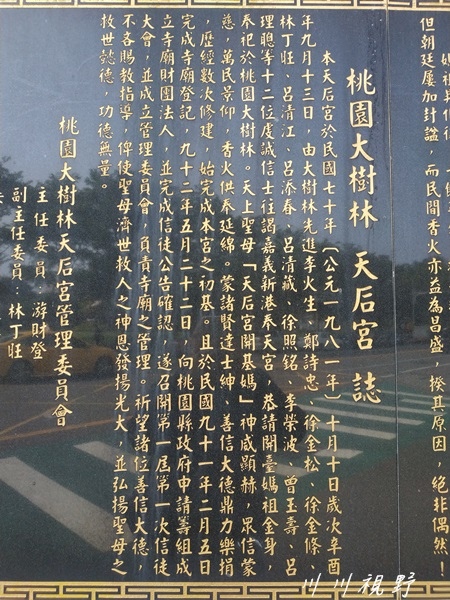 但朝廷屢加封謚，而民間香火亦益為昌盛，揆其原因，絕非偶然！
桃園大樹林 天后宮 誌
本天后宮於民國七十年〔公元一九八一年〕十月十日歲次辛酉
年九月十三日，由大樹林先進李火生、鄭詩忠、徐金松、徐金條、
林丁旺、呂清江、呂添春、呂清藏、徐照銘、李榮波、曾玉壽、呂
理聰等十二位虔誠信士往謁嘉義新港奉天宮，恭請開臺媽祖金身，
奉祀於桃園大樹林。天上聖母「天后宮開基媽」神威顯赫，眾信蒙
慈，萬民景仰，香火供奉延綿。蒙諸賢達士紳、善信大德鼎力樂捐
，歷經數次修建，始完成本宮之初基。且於民國九十一年二月五日
完成寺廟登記，九十二年五月二十二日，向桃園縣政府申請籌組成
立寺廟財團法人，並完成信徒公告確認，遂召開第一屆第一次信徒
大會，並成立管理委員會，負責寺廟之管理。祈望諸位善信大德，
不吝賜教指導，俾使聖母濟世救人之神恩發揚光大，並弘揚聖母之
救世懿德，功德無量。
桃園大樹林天后宮管理委員會
主任委員：游財登
副主任委員：林丁旺
川川視野